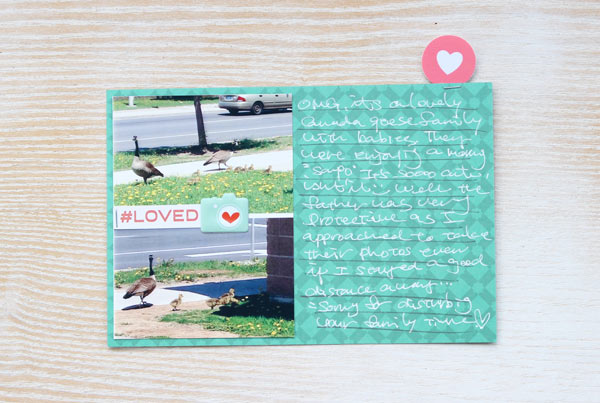 #LOVED
OMG, it's a lovely
Canada goose family
with babies. They
were enjoying a
"safo" It's sooo cute,
the
father was very
protective as I
approached to take
their photos even
if I stayed a good
distance away...
Sorry for disturbing
your family time